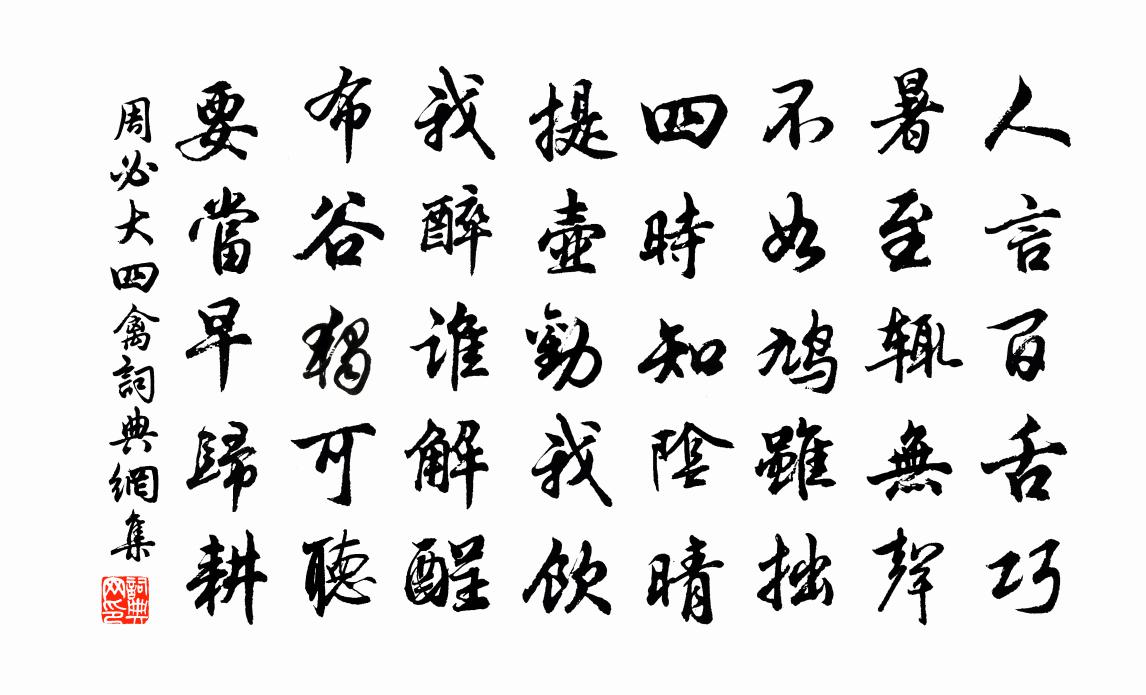 人言百舌巧
暑至輒無聲
不如鳩雖拙
四時知陰晴
提壺勸我飲
我醉誰解酲
布谷獨可聽
要當早歸耕
周必大四禽詞典網集
詞典網印